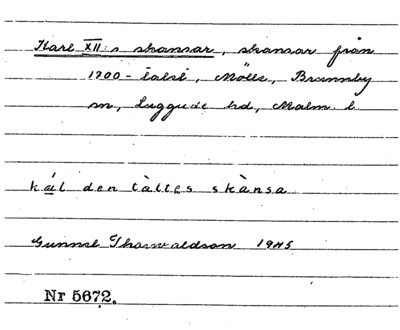 Karl XII:s skansar, skansar från
1700-talet, Mölle, Brunnby
sn, Luggude hd, Malm. l.
kál den tàltes skànsa
Gunnel Thorwaldson 1945
Nr 5672.